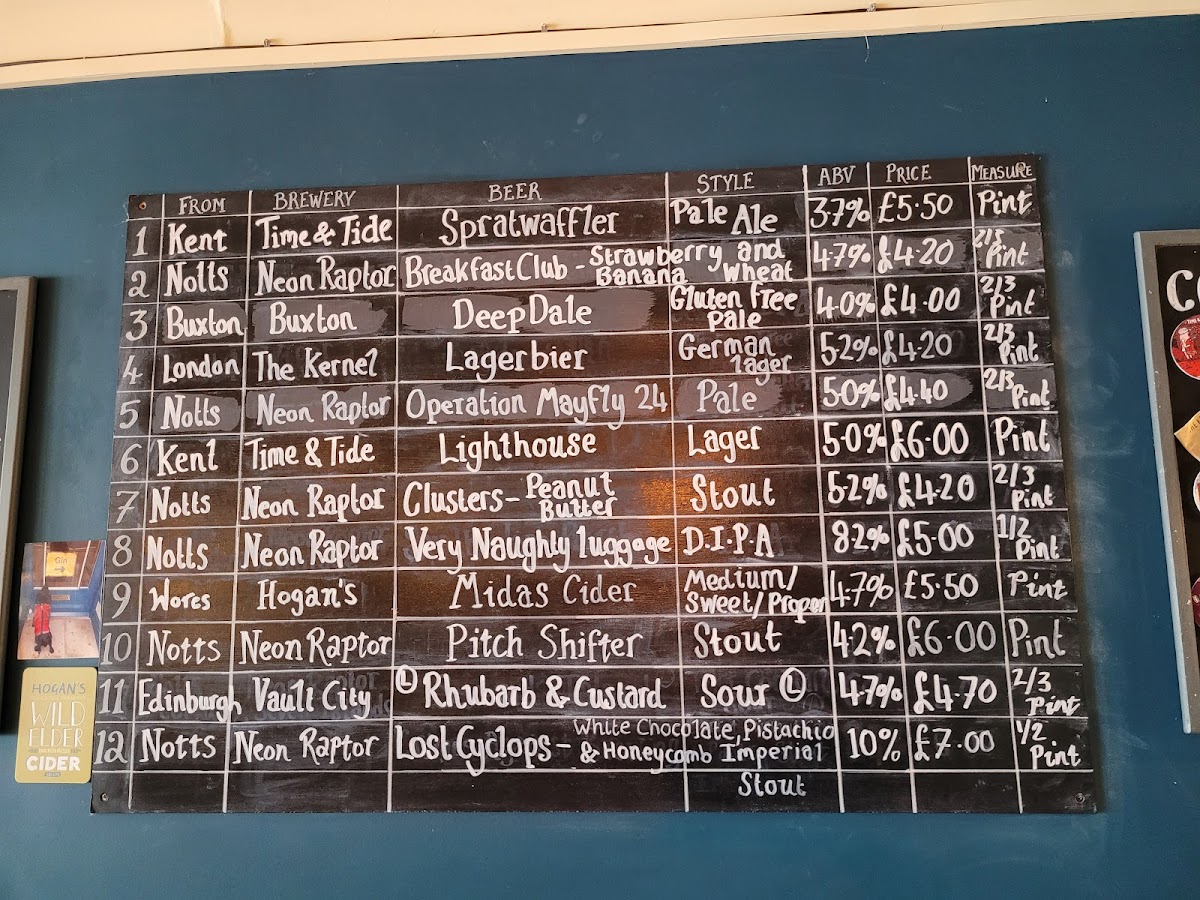 FROM BREWERY BEER STYLE ABV PRICE MEASURE
1 Kent Time & Tide Spratwaffler Pale Ale 3.7% £5.50 Pint
2 Notts Neon Raptor Breakfast Club - Strawberry and Banana Wheat 4.7% £4.20 2/3 Pint
3 Buxton Buxton Deep Dale Gluten free Pale 4.0% £4.00 2/3 Pint
4 London The Kernel Lagerbier German lager 5.2% £4.20 2/3 Pint
5 Notts Neon Raptor Operation Mayfly 24 Pale 5.0% £4.40 2/3 Pint
6 Kent Time & Tide Lighthouse Lager 5.0% £6.00 Pint
7 Notts Neon Raptor Clusters - Peanut Butter Stout 5.2% £4.20 2/3 Pint
8 Notts Neon Raptor Very Naughly luggage D.I.P.A 8.2% £5.00 1/2 Pint
9 Worcs Hogan's Midas Cider Medium/ Sweet/Proper 4.7% £5.50 Pint
10 Notts Neon Raptor Pitch Shifter Stout 4.2% £6.00 Pint
11 Edinburgh Vault City Ⓛ Rhubarb & Custard Sour Ⓛ 4.7% £4.70 2/3 Pint
12 Notts Neon Raptor Lost Cyclops - White Chocolate, Pistachio & Honeycomb Imperial Stout 10% £7.00 1/2 Pint
Gin
HOGAN'S
WILD
ELDER
CIDER
C